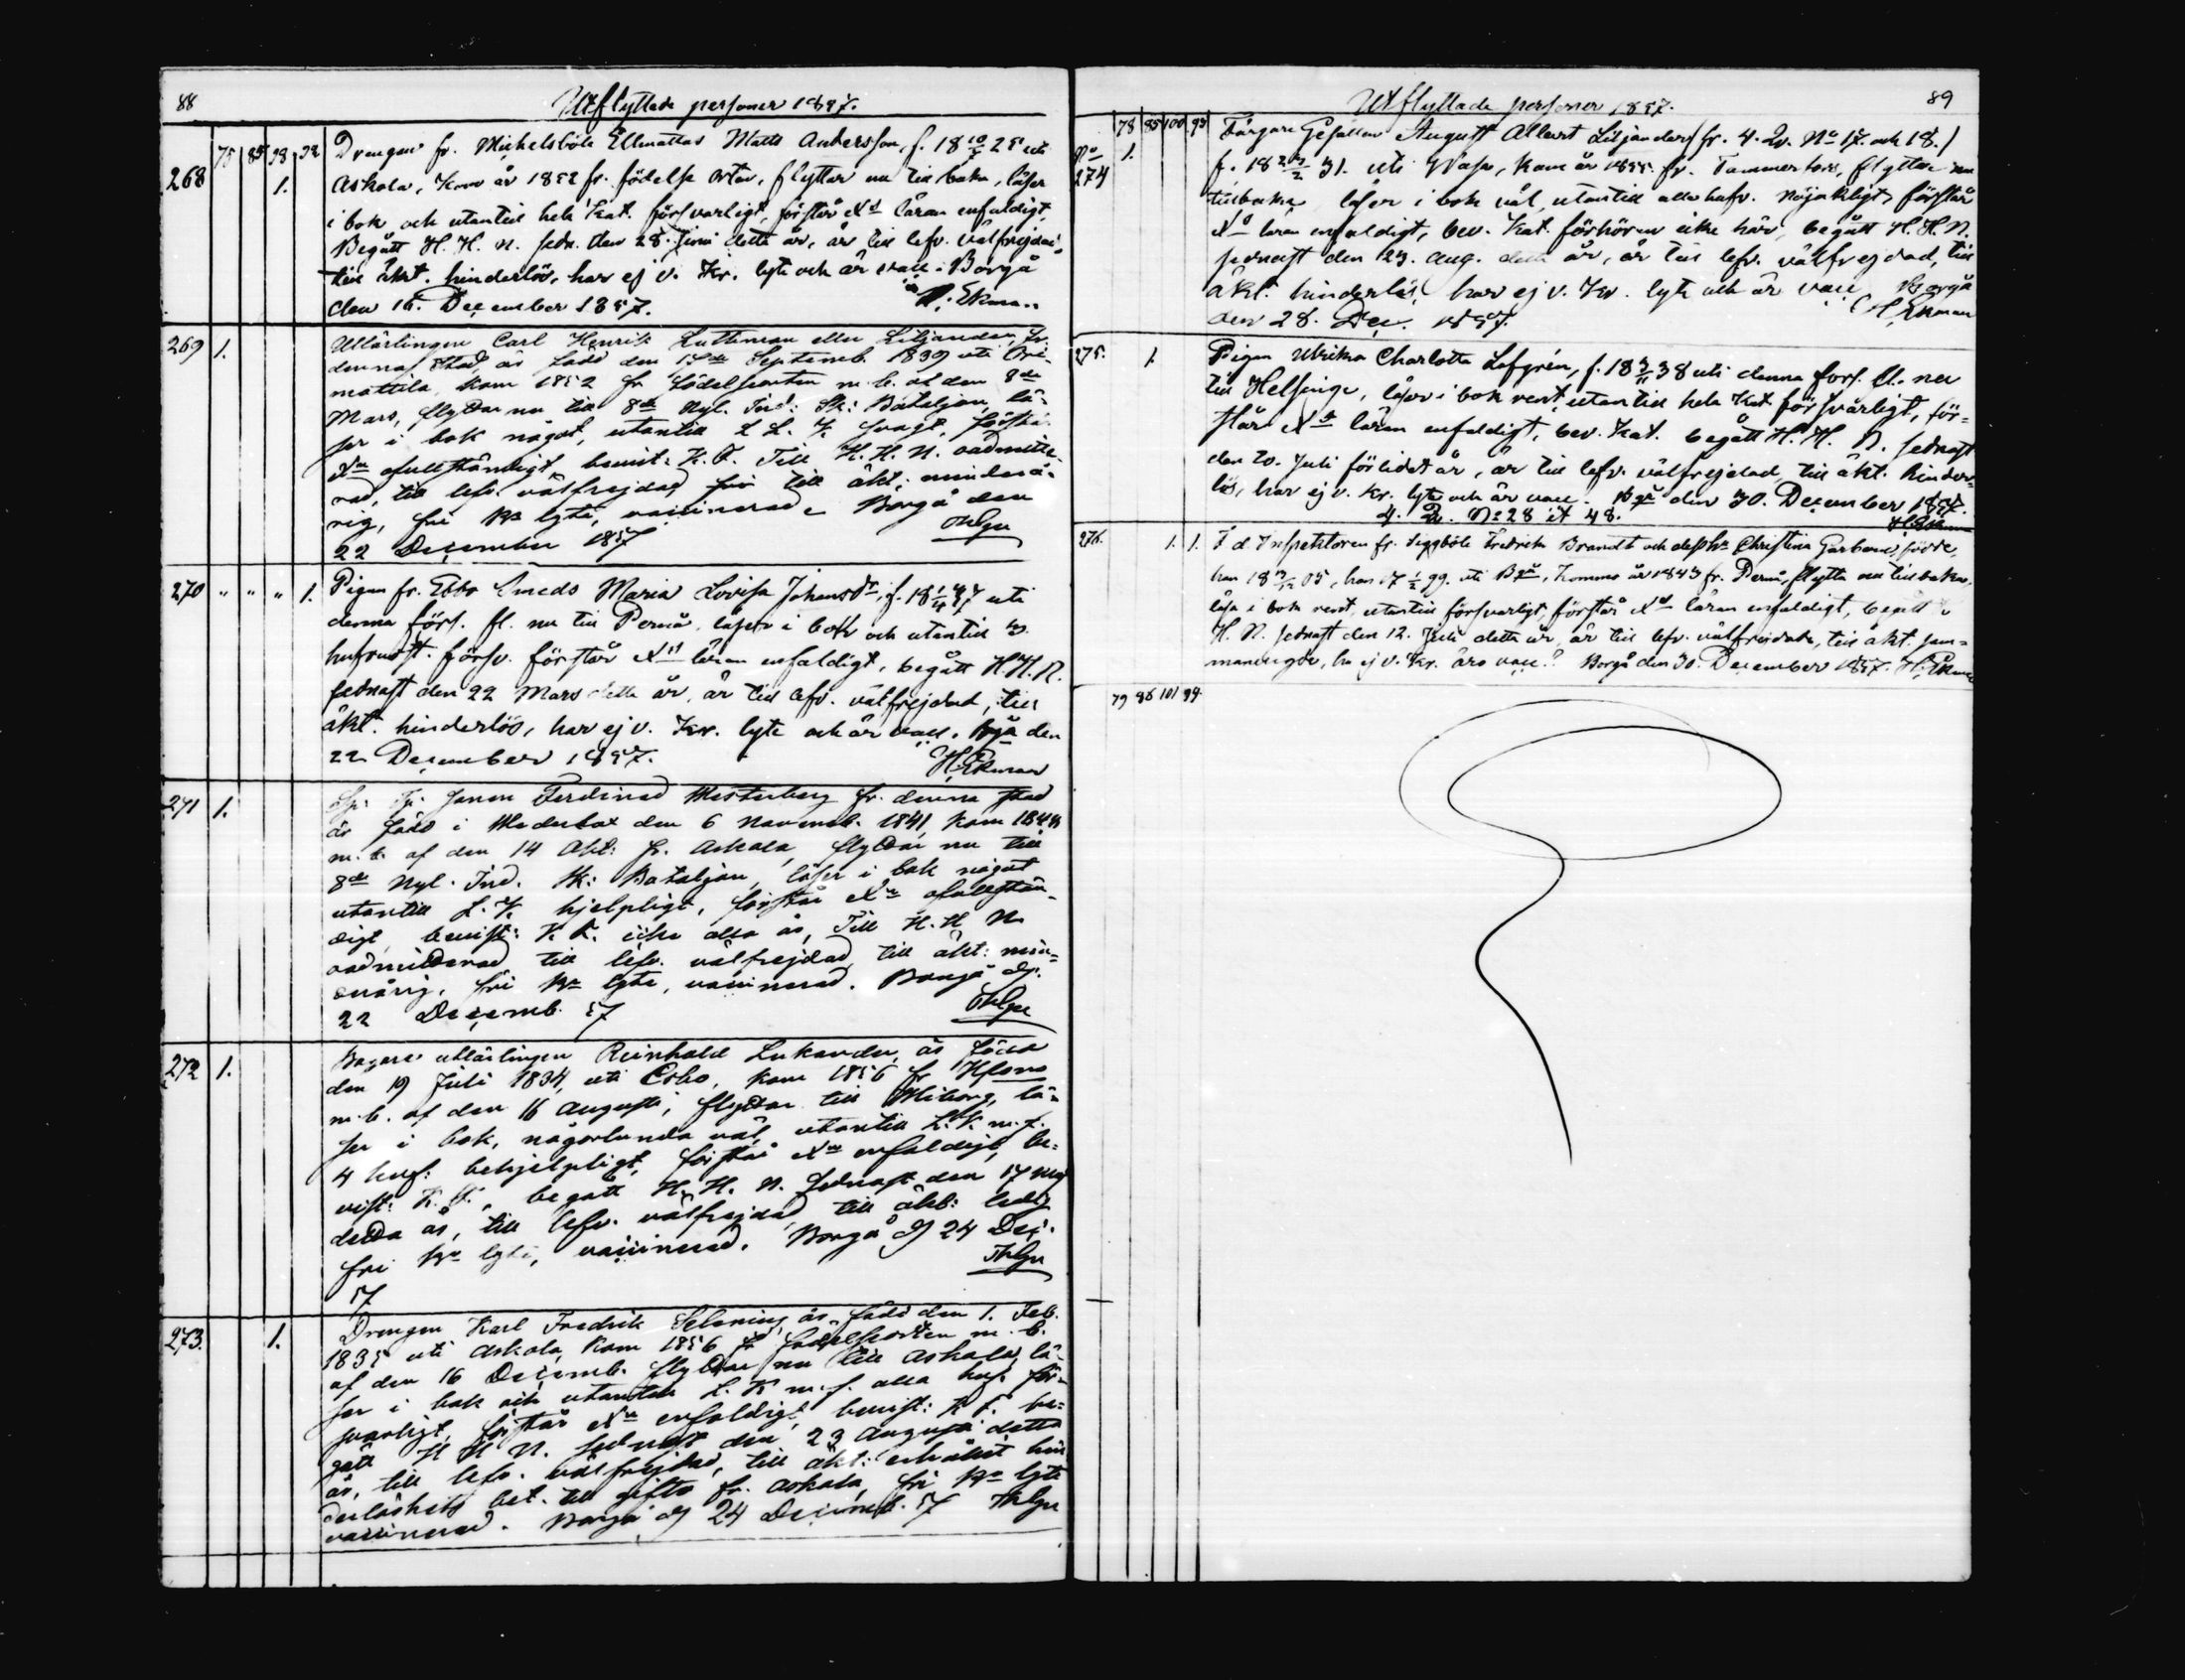 88 Utflyttade personer 1857.
75 85 98 92
268 1. Drengen fr. Michelsböle Ellmattas Matts Andersson, f. 18 10/5 25 uti
Askola, kom år 1852 fr. födelse orten, flyttar nu tillbaka, läser
i bok och utantill hela Kat. försvarligt, förstår Xd läran enfaldigt,
Begått H. H. N. sedn. den 28. Juni detta år, är till lefv. välfrejdad,
till äkt. hinderlös, har ej v. Kr. lyte och är vacc. Borgå
den 16. December 1857. H. Ekman
269 1. Utlärlingen Carl Henrik Luttman eller Liljander, fr.
denna Stad, är född den 17de Septemb. 1839 uti Ori-
mattila, kom 1852 fr. födelseorten m. b. af den 8de
Mars, flyttar nu till 8de Nyl. Ind: Sk: Bataljon, lä-
ser i bok något, utantill L. K. svagt, förstår
Xn ofullständigt, bevist: K. F. Till H. H. N. oadmitte-
rad, till lefv. välfrejdad, till äkt: minderå-
rig, fri Kr lyte, vaccinerad. Borgå den
22 December 1857
270 " " " 1. Pigan fr. Ebbo Smeds Maria Lovisa Johansdr, f. 18 1/11 37 uti
denna förs. fl. nu till Pernå, läser i bok och utantill 3
hufvudst. försv. förstår Xd läran enfaldigt, begått H. H. N.
sednast den 22 Mars detta år, är till lefv. välfrejdad, till
äkt. hinderlös, har ej v. Kr. lyte och är vacc. Bgå den
22 December 1857. H. Ekman
271 1. Ferdinad Westerberg fr. denna stad
är född i den 6 Novemb. 1841, kom 1844
m. b. af den 14 Okt: fr. Askola, flyttar nu till
8de Nyl. Ind. Sk: Bataljon, läser i bok något
utantill L. K. hjelpligt, förstår Xn ofullstän-
digt, bevist: K. F. icke alla år, Till H. H. N.
oadmitterad, till lefv. välfrejdad, till äkt: min-
derårig, fri Kr lyte, vaccinerad. Borgå
22 Decemb. 57
272 1. Bagare utlärlingen Reinhold Lukander, är född
den 19 Juli 1834, uti Esbo, kom 1856 fr. Hfors
m. b. af den 16 Augusti, flyttar till Wiborg, lä-
ser i bok, någorlunda väl, utantill L. K. m. f.
4 huf: behjelpligt, förstår Xn enfaldigt, be-
vist: K. F., begått H. H. N. sednast den 17 Maj
detta år, till lefv. välfrejdad, till äkt: ledig
fri Kr lyte, vaccinerad. Borgå d 24 Dec.
57
273. 1. Drengen Karl Fredrik Selening, är född den 1. Feb.
1835 uti Askola, kom 1856 fr. födelseorten m. b.
af den 16 Decemb. flyttar nu till Askola, lä-
ser i bok och utantill L. K m. f. alla huf. för-
svarligt, förstår Xn enfaldigt, bevist: K F. be-
gått H H N. sednast den 23 Augusti detta
år, till lefv. välfrejdad, till äkt: erhållit hin-
derlöshets bet. till gifte fr. Askola, fri Kr lyte
vaccinerad. Borgå d 24 Decemb. 57
Utflyttade personer 1857. 89
78 85 100 93
No 274 1. Färgare Gesällen August Albert Liljander /fr. 4. Qv. No 17. och 18./
f. 18 23/2 31. uti Wasa, kom år 1855 fr. Tammerfors, flyttar nu
tillbaka, läser i bok väl, utantill alla hufv. nöjaktligt, förstår
Xd läran enfaldigt, bev. Kat. förhören icke här, begått H. H. N.
sednast den 23. Aug. detta år, är till lefv. välfrejdad, till
äkt. hinderlös, har ej v. Kr. lyte och är vacc. Borgå
den 28. Dec. 1857. H. Ekman
275. 1. Pigan Ulrika Charlotta Lofgrén, f. 18 3/11 38 uti denna förs. fl. nu
till Helsinge, läser i bok rent, utantill hela Kat. försvarligt, för-
står Xd läran enfaldigt, bev. Kat. begått H. H. N. sednast
den 20. Juli förlidet år, är till lefv. välfrejdad, till äkt. hinder-
lös, har ej v. Kr. lyte och är vacc. Bgå den 30. December 1857.
4. Q. No 28 et 48. H. Ekman
276. 1. 1. F d Inspektoren fr. Seggböle Fredrik Brandt och dess Hu Christina födde,
han 18 3/12 05, hon 17 1/2 99. uti Bgå, komne år 1843 fr. Pernå, flytta nu tillbaka,
läsa i bok rent, utantill försvarligt, förstår Xd läran enfaldigt, begått
H. N. sednast den 12. Juli detta år, är till lefv. välfrejdade, till äkt. sam-
manvigde, ha ej v. Kr. äro vacc. Borgå den 30. December 1857. H. Ekman
79 86 101 94